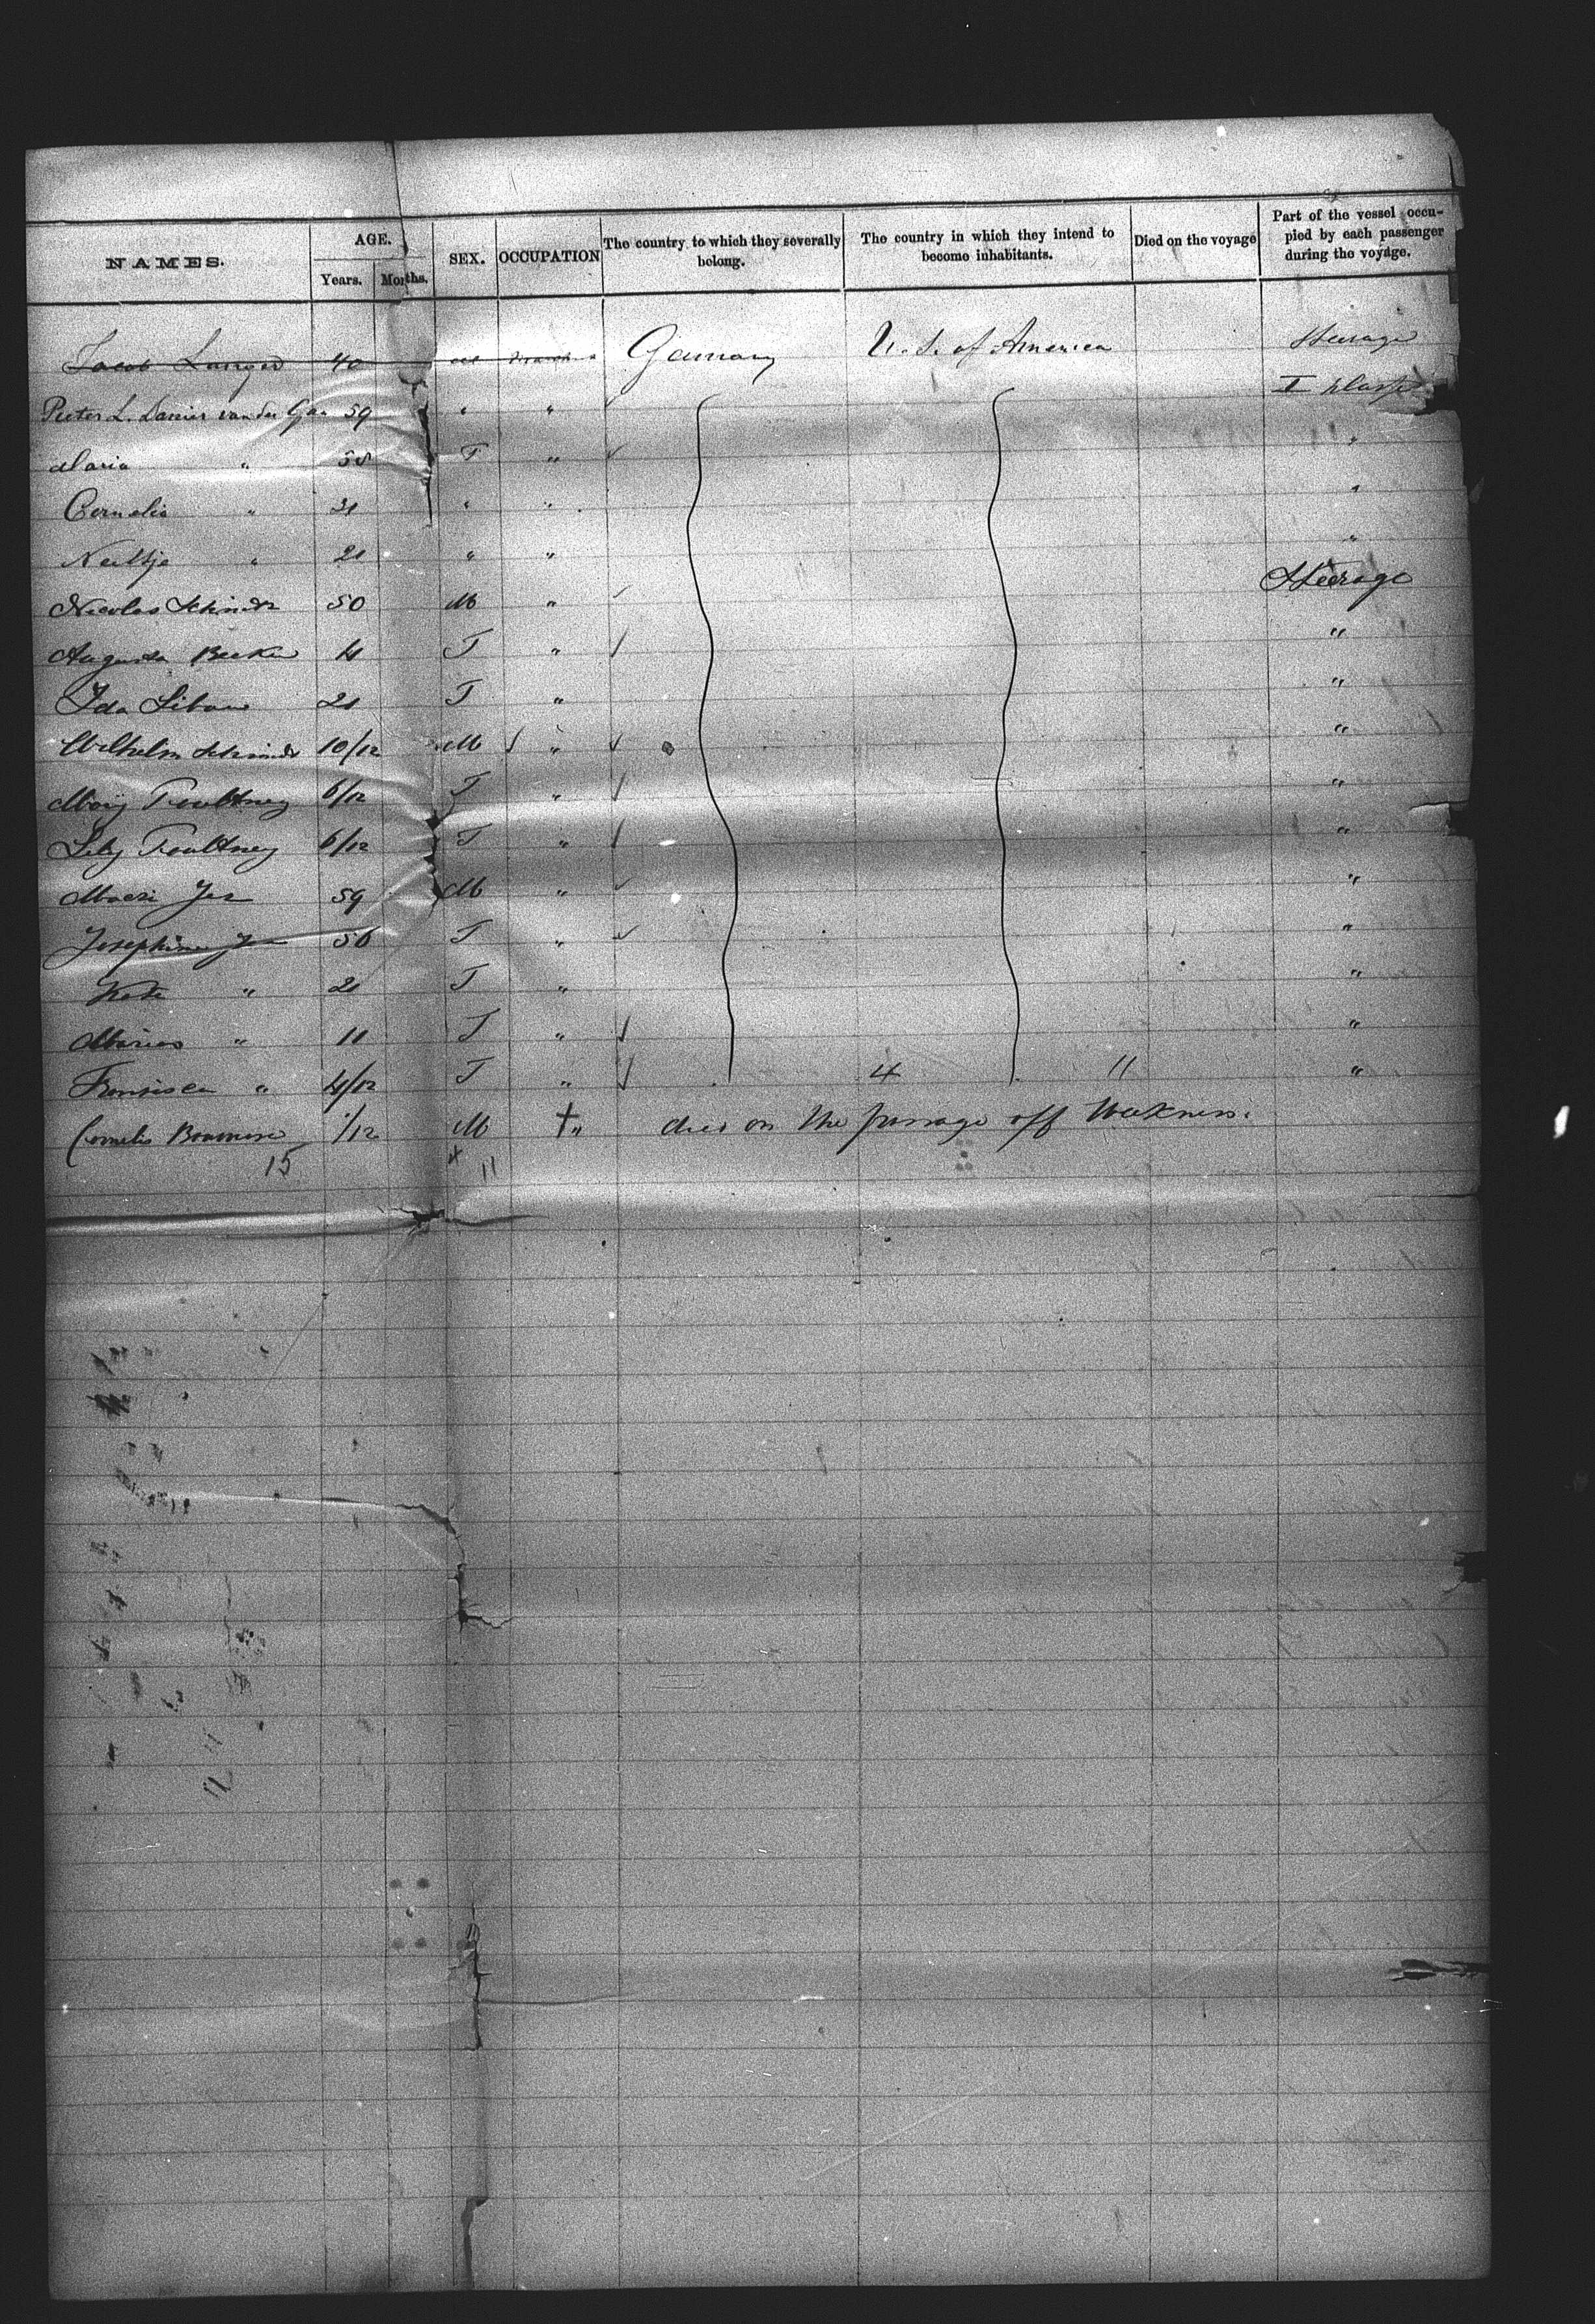 NAMES. AGE. Years. Months. SEX. OCCUPATION The country to which they severally belong. The country in which they intend to become inhabitants. Died on the voyage Part of the vessel occupied by each passenger during the voyage.
Jacob 40 M Germany U. S. of America Steerage
Pieter L. van der 59 " " I
Maria " 58 F " "
Cornelia " " " "
Neeltje " 21 " " "
Nicolas Schmidt 50 M " Steerage
Augusta Becker 4 F " "
Ida 21 F " "
Wilhelm Schmidt 10/12 M " "
Mary Poultney 6/12 F " "
Lily Poultney 6/12 F " "
59 M " "
Josephine 56 F " "
Kate " 21 F " "
" 11 F " "
" 4/12 F " 4 11 "
Cornelis 1/12 M † " died on the passage off Weakness.
15 4 11